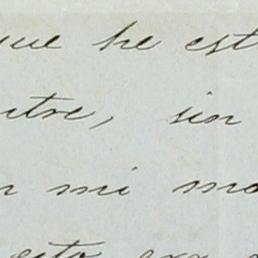 que he est
ntre, sin
n mi ma
esto exa